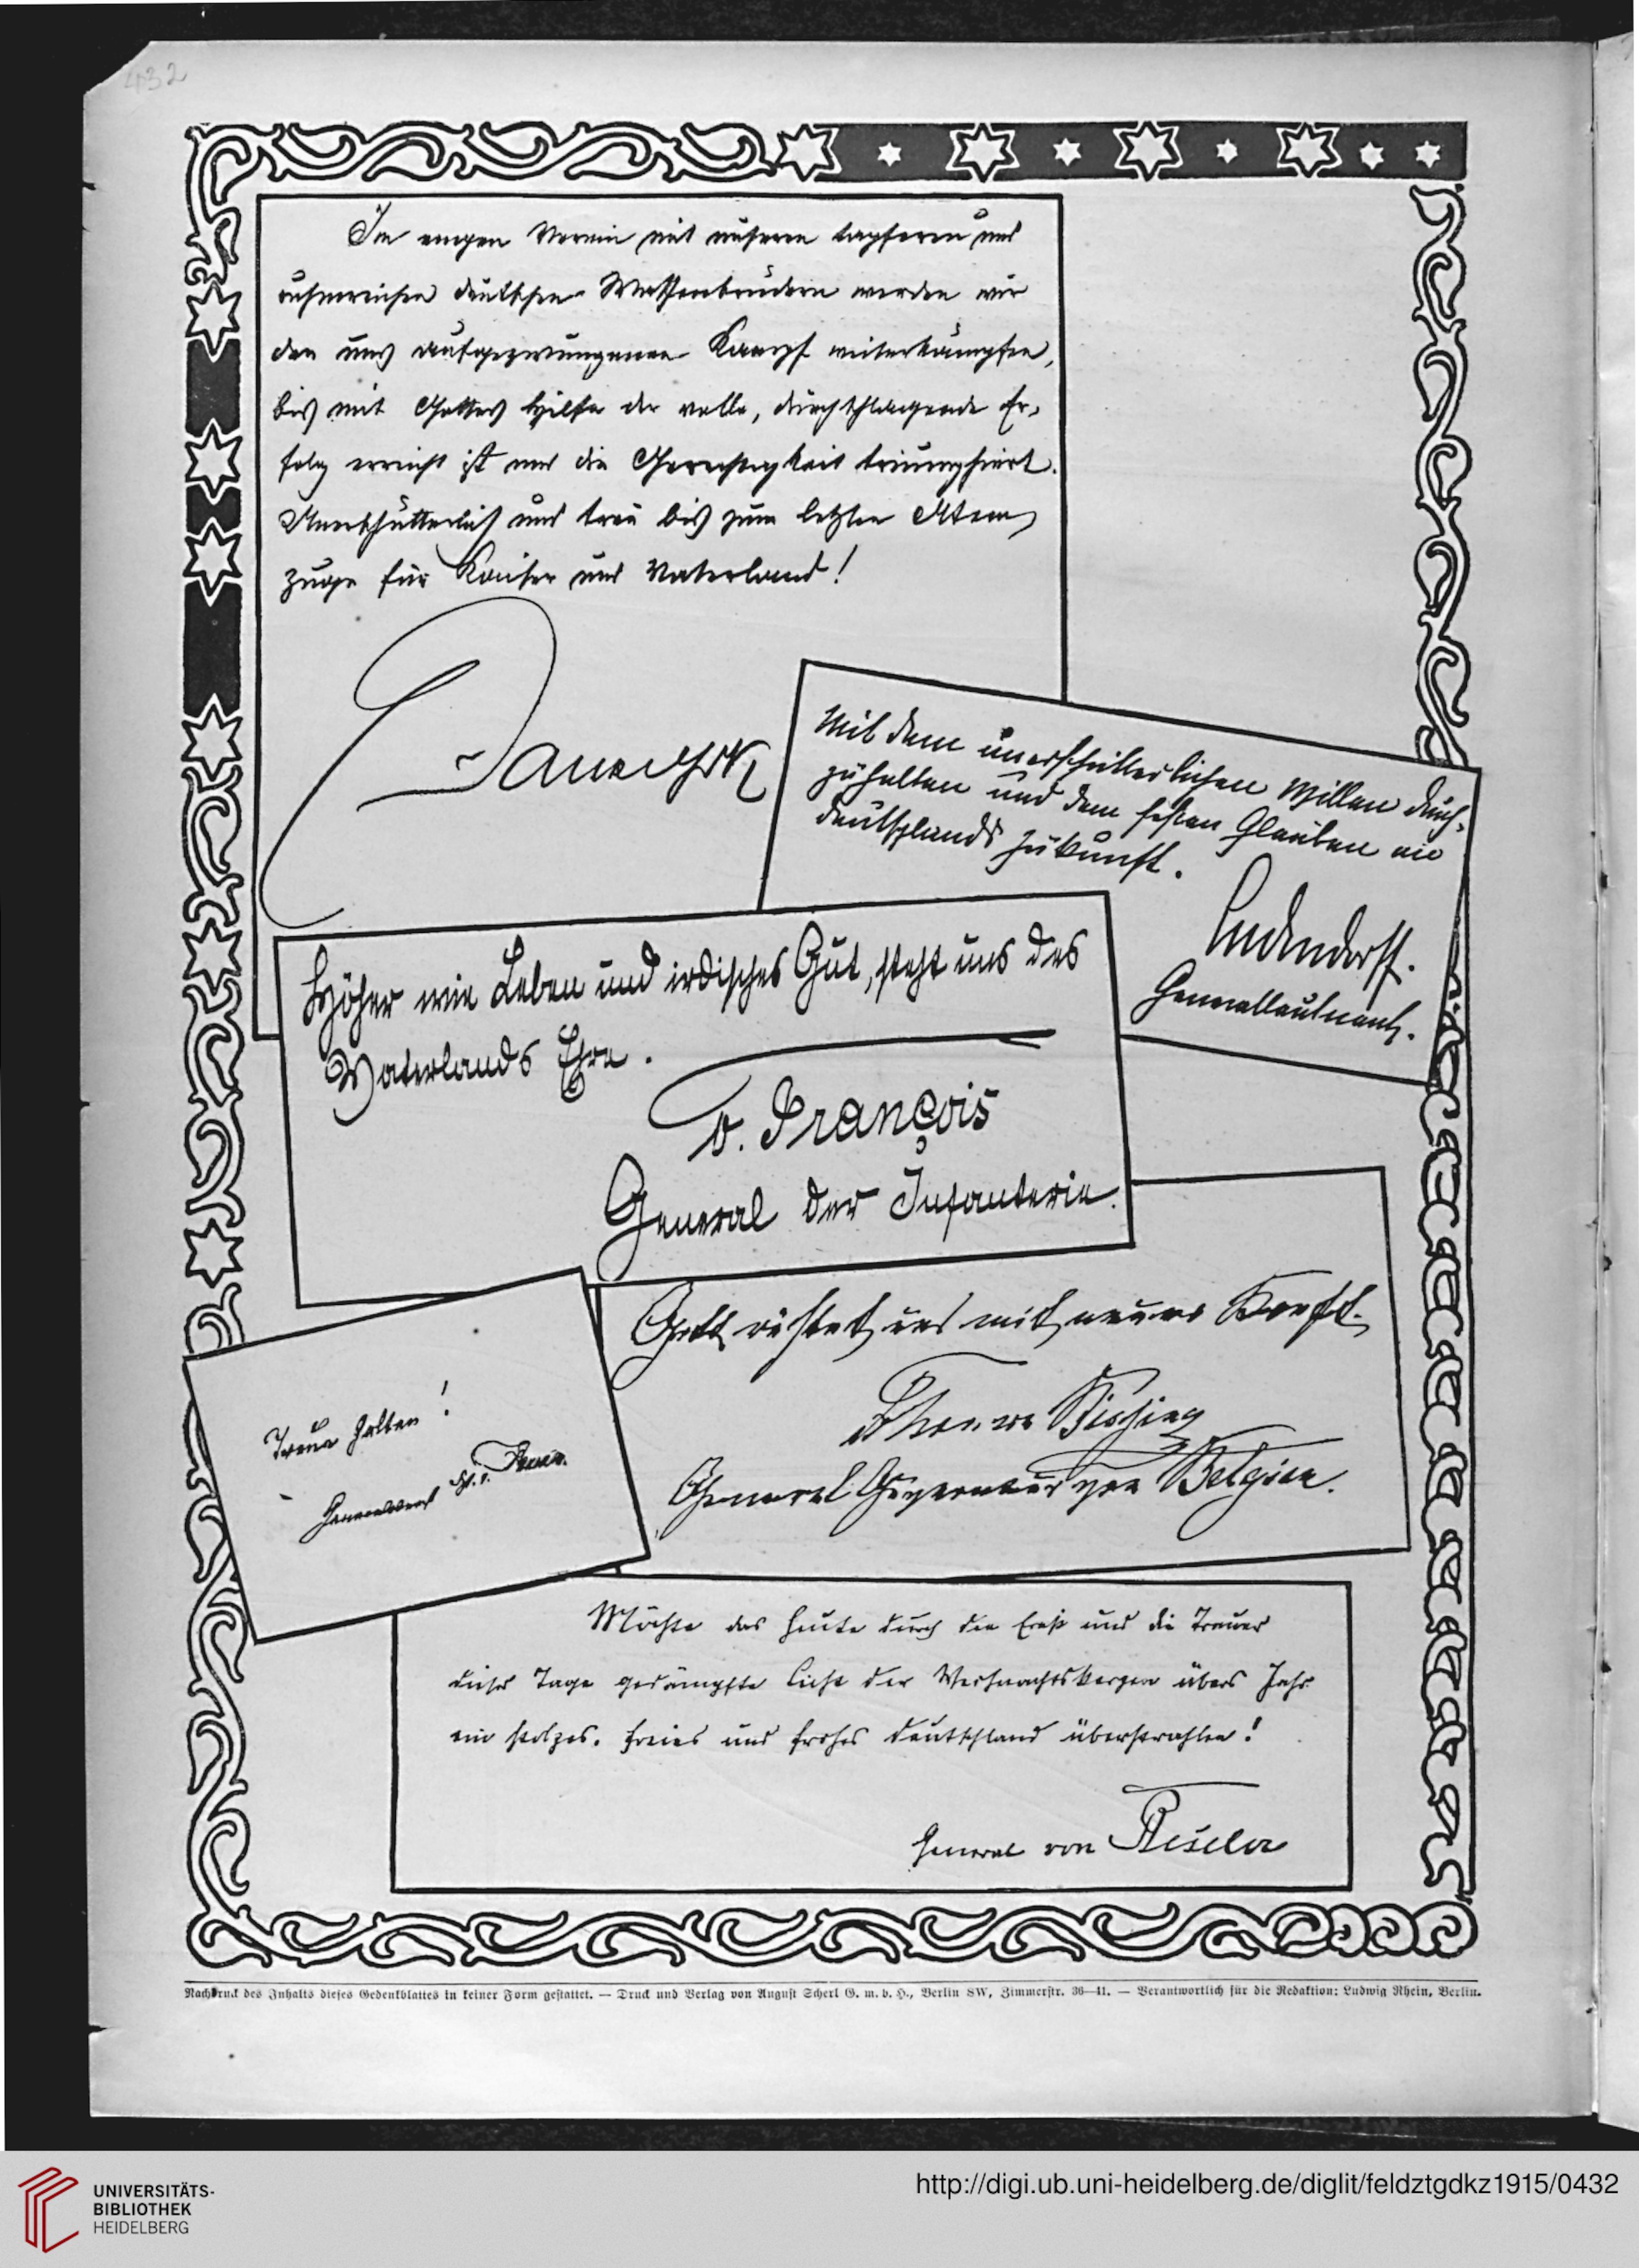 432
Im engen Verein mit unseren tapferen und
ruhmreichen deutschen Waffenbrüdern werden wir
den uns aufgezwungenen Kampf weiterkämpfen,
bis mit Gottes Hilfe der volle, durchschlagende Er-
folg erreicht ist und die Gerechtigkeit triumphiert.
Unerschütterlich und treu bis zum letzten Atem-
zuge für Kaiser und Vaterland!
Mit dem unerschütterlichen Willen durch-
zuhalten und dem festen Glauben an
Deutschlands Zukunft.
Ludendorff.
Generalleutnant.
Höher wie Leben und irdisches Gut, steht uns des
Vaterlands Ehre.
v. François
General der Infanterie.
Gott rüstet uns mit neuer Kraft.
Freiherr von Bissing
General Gouverneur von Belgien.
Treue halten!
Möchte das heute durch den Ernst und die Trauer
dieser Tage gedämpfte Licht der Weihnachtskerzen übers Jahr
ein stolzes, freies und frohes Deutschland überstrahlen!
General von Beseler
Nachdruck des Inhalts dieses Gedenkblattes in keiner Form gestattet. — Druck und Verlag von August Scherl G. m. b. H., Berlin SW, Zimmerstr. 36—41. — Verantwortlich für die Redaktion: Ludwig Rhein, Berlin.
UNIVERSITÄTS-
BIBLIOTHEK
HEIDELBERG
http://digi.ub.uni-heidelberg.de/diglit/feldztgdkz1915/0432